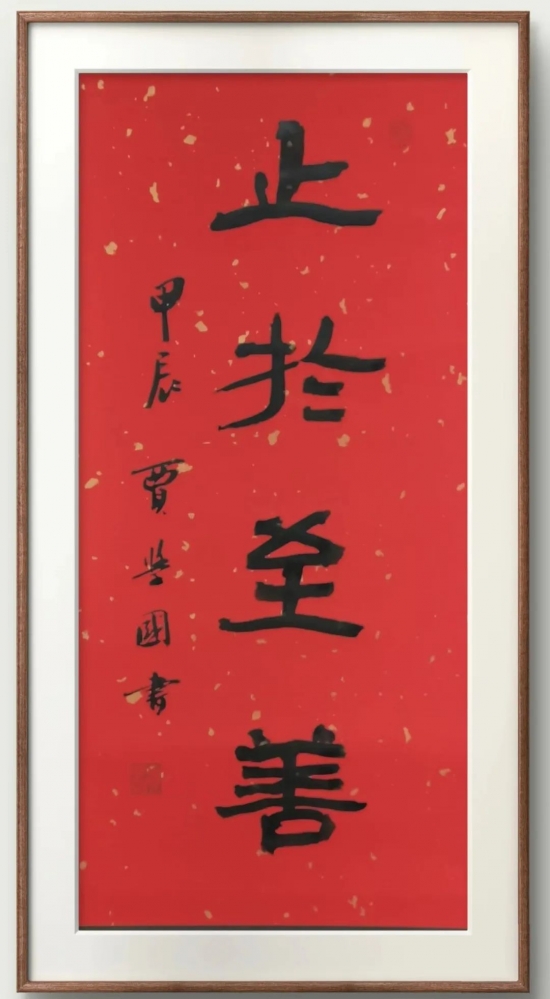 止於至善
甲辰 賈學國書